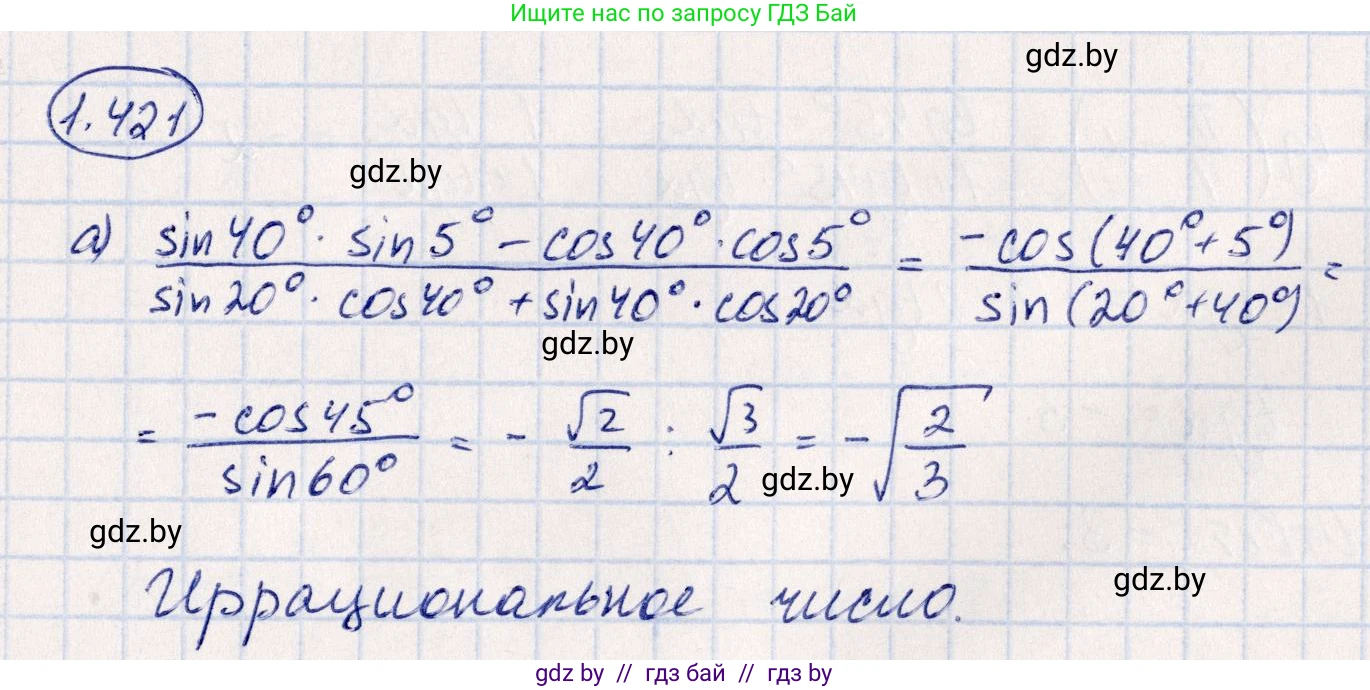 Ищите нас по запросу ГДЗ Бай
gdz.by
1.421
gdz.by
а) (sin40°·sin5° − cos40°·cos5°)/(sin20°·cos40° + sin40°·cos20°) = −cos(40°+5°)/sin(20°+40°) =
gdz.by
= −cos45°/sin60° = − √2/2 : √3/2 = −√(2/3)
gdz.by
gdz.by
Иррациональное число.
gdz.by
gdz by // гдз бай // гдз by